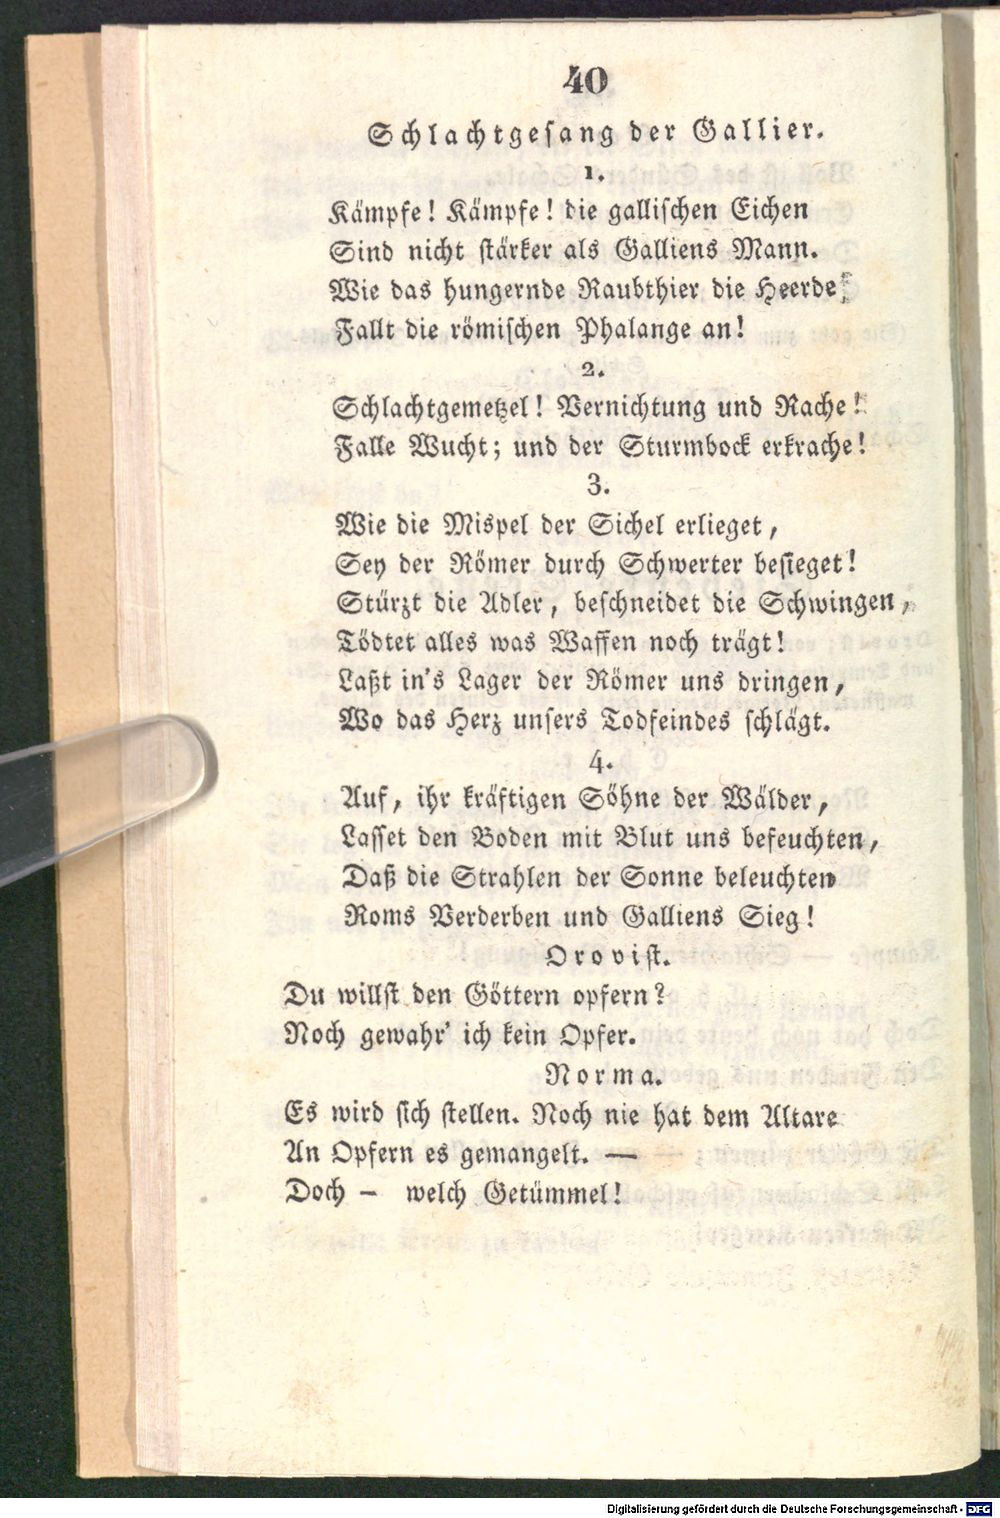 40
Schlachtgesang der Gallier.
1.
Kämpfe! Kämpfe! die gallischen Eichen
Sind nicht stärker als Galliens Mann.
Wie das hungernde Raubthier die Heerde
Fallt die römischen Phalange an!
2.
Schlachtgemetzel! Vernichtung und Rache!
Falle Wucht; und der Sturmbock erkrache!
3.
Wie die Mispel der Sichel erlieget,
Sey der Römer durch Schwerter besieget!
Stürzt die Adler, beschneidet die Schwingen,
Tödtet alles was Waffen noch trägt!
Laßt in's Lager der Römer uns dringen,
Wo das Herz unsers Todfeindes schlägt.
4.
Auf, ihr kräftigen Söhne der Wälder,
Lasset den Boden mit Blut uns befeuchten,
Daß die Strahlen der Sonne beleuchten
Roms Verderben und Galliens Sieg!
Orovist.
Du willst den Göttern opfern?
Noch gewahr' ich kein Opfer.
Norma.
Es wird sich stellen. Noch nie hat dem Altare
An Opfern es gemangelt. —
Doch – welch Getümmel!
Digitalisierung gefördert durch die Deutsche Forschungsgemeinschaft - DFG